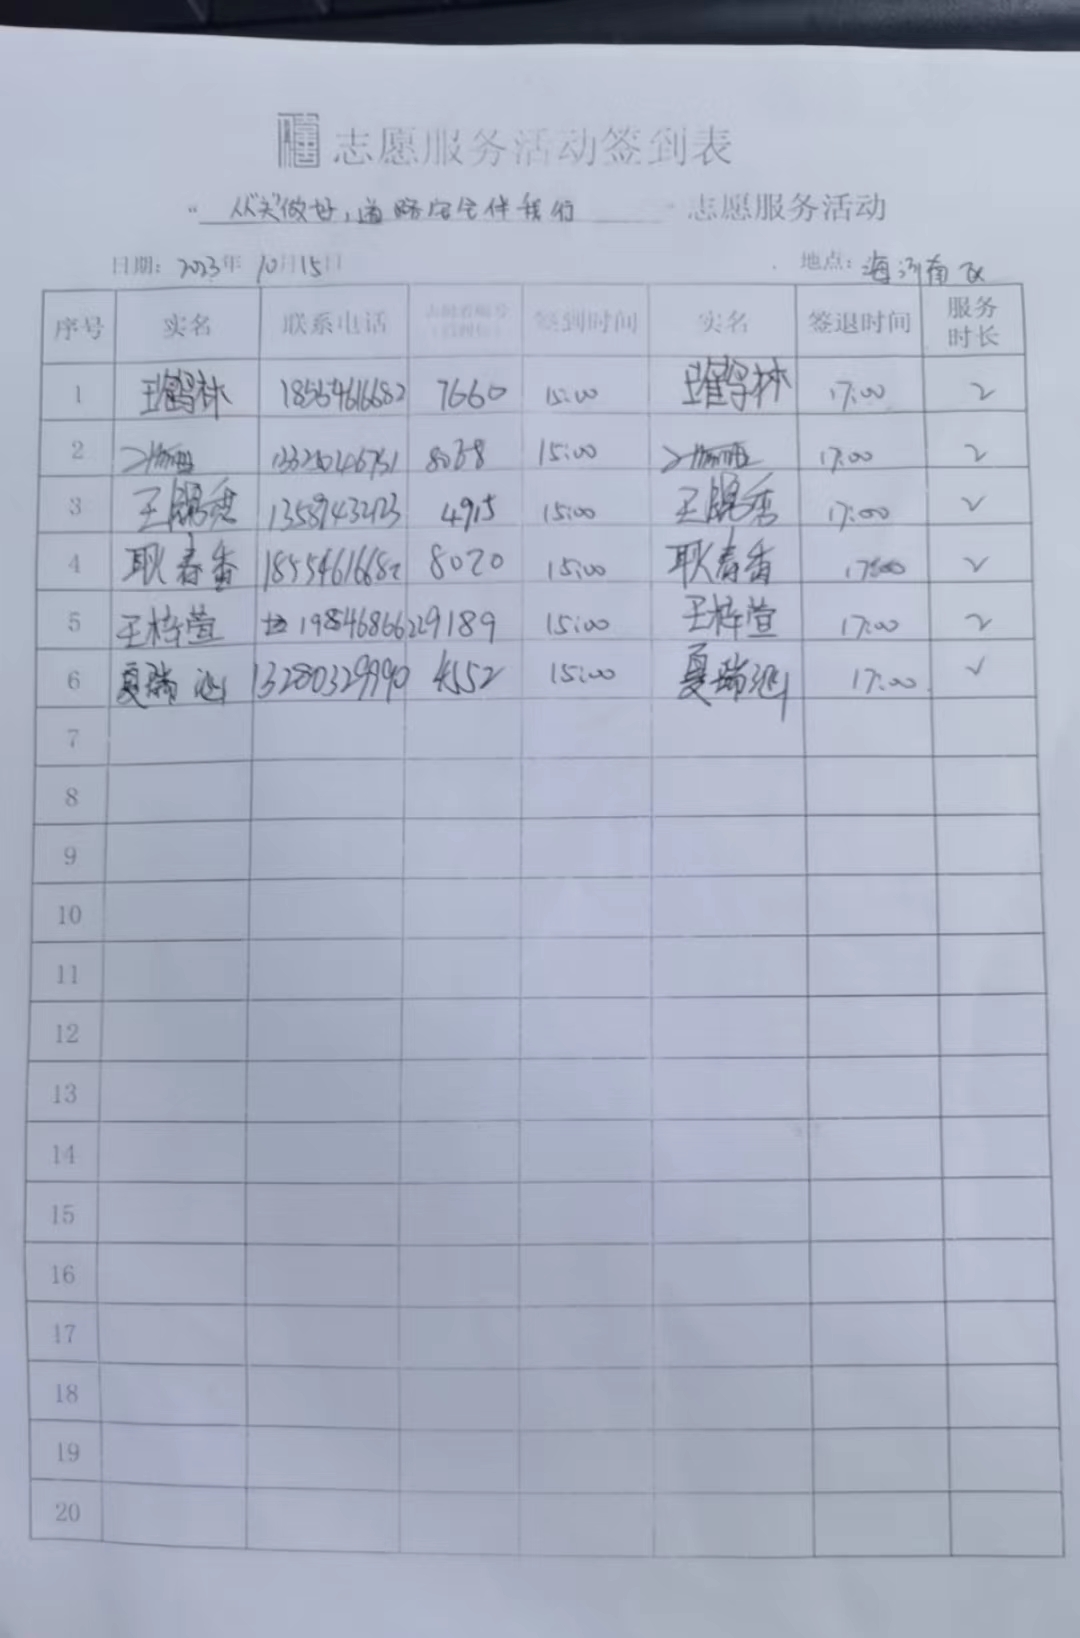 志愿服务活动签到表
“从头做好，道路安全伴我行”志愿服务活动
日期：2023年10月15日 地点：海河南区
序号 实名 联系电话 签到时间 实名 签退时间 服务时长
1 林 7660 15:00 林 17:00 2
2 8038 15:00 17:00 2
3 王 13589432123 4915 15:00 王 17:00 2
4 耿春香 18554616682 8020 15:00 耿春香 17:00 2
5 王梓萱 19854686622 9189 15:00 王梓萱 17:00 2
6 夏瑞 13280329990 4552 15:00 夏瑞 17:00 2
7
8
9
10
11
12
13
14
15
16
17
18
19
20